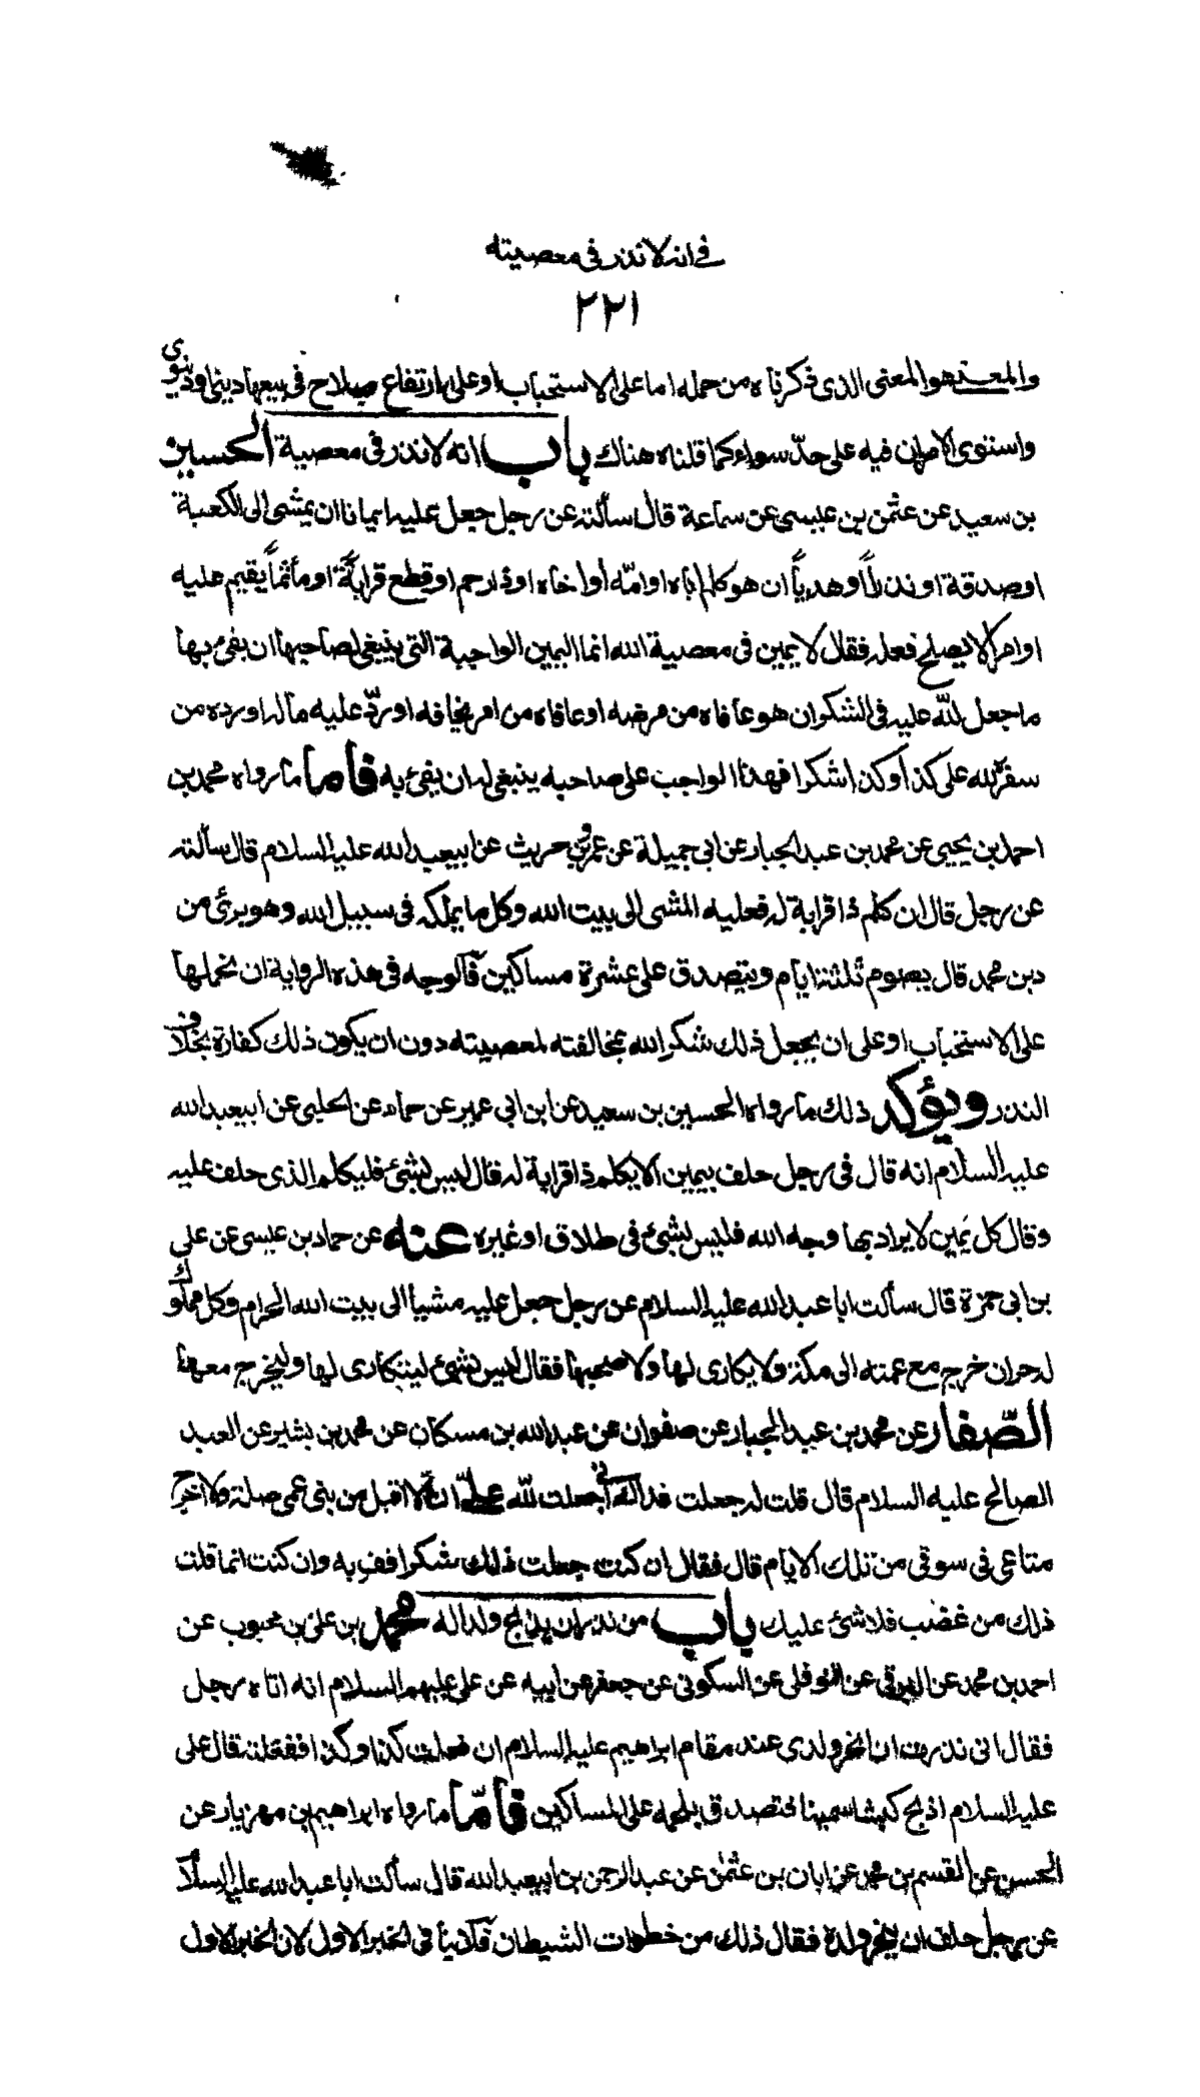 في انه لا نذر في معصيته
٢٢١
والمعنى هو المعنى الذى ذكرناه من حمله اما على الاستحباب او على ارتفاع صلاح في بيعها دينا ودنيوى
واستوى الامران فيه على حدّ سواء كما قلناه هناك باب انه لا نذر في معصية الحسين
بن سعيد عن عثمن بن عيسى عن سماعة قال سألته عن رجل جعل عليه ايمانا ان يمشى الى الكعبة
او صدقة او نذراً او هدياً ان هو كلم اباه او امّه او اخاه او ذا رحم او قطع قرابةً او مأثماً يقيم عليه
او امرا لا يصلح فعله فقال لا يمين في معصية الله انما اليمين الواجبة التى ينبغى لصاحبها ان يفئ بها
ما جعل للّه عليه في الشكر ان هو عافاه من مرضه او عافاه من امر يخافه او ردّ عليه ماله او رده من
سفر لله على كذا وكذا شكرا فهذا الواجب على صاحبه ينبغى له ان يفئ به فاما ما رواه محمد بن
احمد بن يحيى عن محمد بن عبد الجبار عن ابى جميلة عن عمرو بن حريث عن ابيعبد الله عليه السلام قال سألته
عن رجل قال ان كلم ذا قرابة له فعليه المشى الى بيت الله وكل ما يملكه في سبيل الله وهو برئ من
دين محمد قال يصوم ثلثة ايام ويتصدق على عشرة مساكين فالوجه في هذه الرواية ان نحملها
على الاستحباب او على ان يجعل ذلك شكرا لله بمخالفته لمعصيته دون ان يكون ذلك كفارة بخلاف
النذر ويؤكد ذلك ما رواه الحسين بن سعيد عن ابن ابى عمير عن حماد عن الحلبى عن ابيعبد الله
عليه السلام انه قال في رجل حلف بيمين الا يكلم ذا قرابة له قال ليس بشئ فليكلم الذى حلف عليه
وقال كل يمين لا يراد بها وجه الله فليس بشئ في طلاق او غيره عنه عن حماد بن عيسى عن على
بن ابى حمزة قال سألت ابا عبد الله عليه السلام عن رجل جعل عليه مشيا الى بيت الله الحرام وكل مملوك
له حر ان خرج مع عمته الى مكة ولا يكارى لها ولا صحبها فقال ليس بشئ ليتكارى لها وليخرج معها
الصّفار عن محمد بن عبد الجبار عن صفوان عن عبد الله بن مسكان عن محمد بن بشير عن العبد
الصالح عليه السلام قال قلت له جعلت فداك انى جعلت للّه علىّ ان لا اقبل من بنى عمى صلة ولا اخرج
متاعى في سوقى من تلك الايام قال فقال ان كنت جعلت ذلك شكرا فف به وان كنت انما قلت
ذلك من غضب فلا شئ عليك باب من نذر ان يذبح ولدا له محمد بن على بن محبوب عن
احمد بن محمد عن البرقى عن النوفلى عن السكونى عن جعفر عن ابيه عن على عليهم السلام انه اتاه رجل
فقال انى نذرت ان انحر ولدى عند مقام ابراهيم عليه السلام ان فعلت كذا وكذا ففعلته قال على
عليه السلام اذبح كبشا سمينا فتصدق بلحمه على المساكين فامّا ما رواه ابراهيم بن مهزيار عن
الحسن عن القسم بن محمد عن ابان بن عثمن عن عبد الرحمن بن ابيعبد الله قال سألت ابا عبد الله عليه السلا
عن رجل حلف ان ينحر ولده فقال ذلك من خطوات الشيطان فلا ينافى الخبر الاول لان الخبر الاول